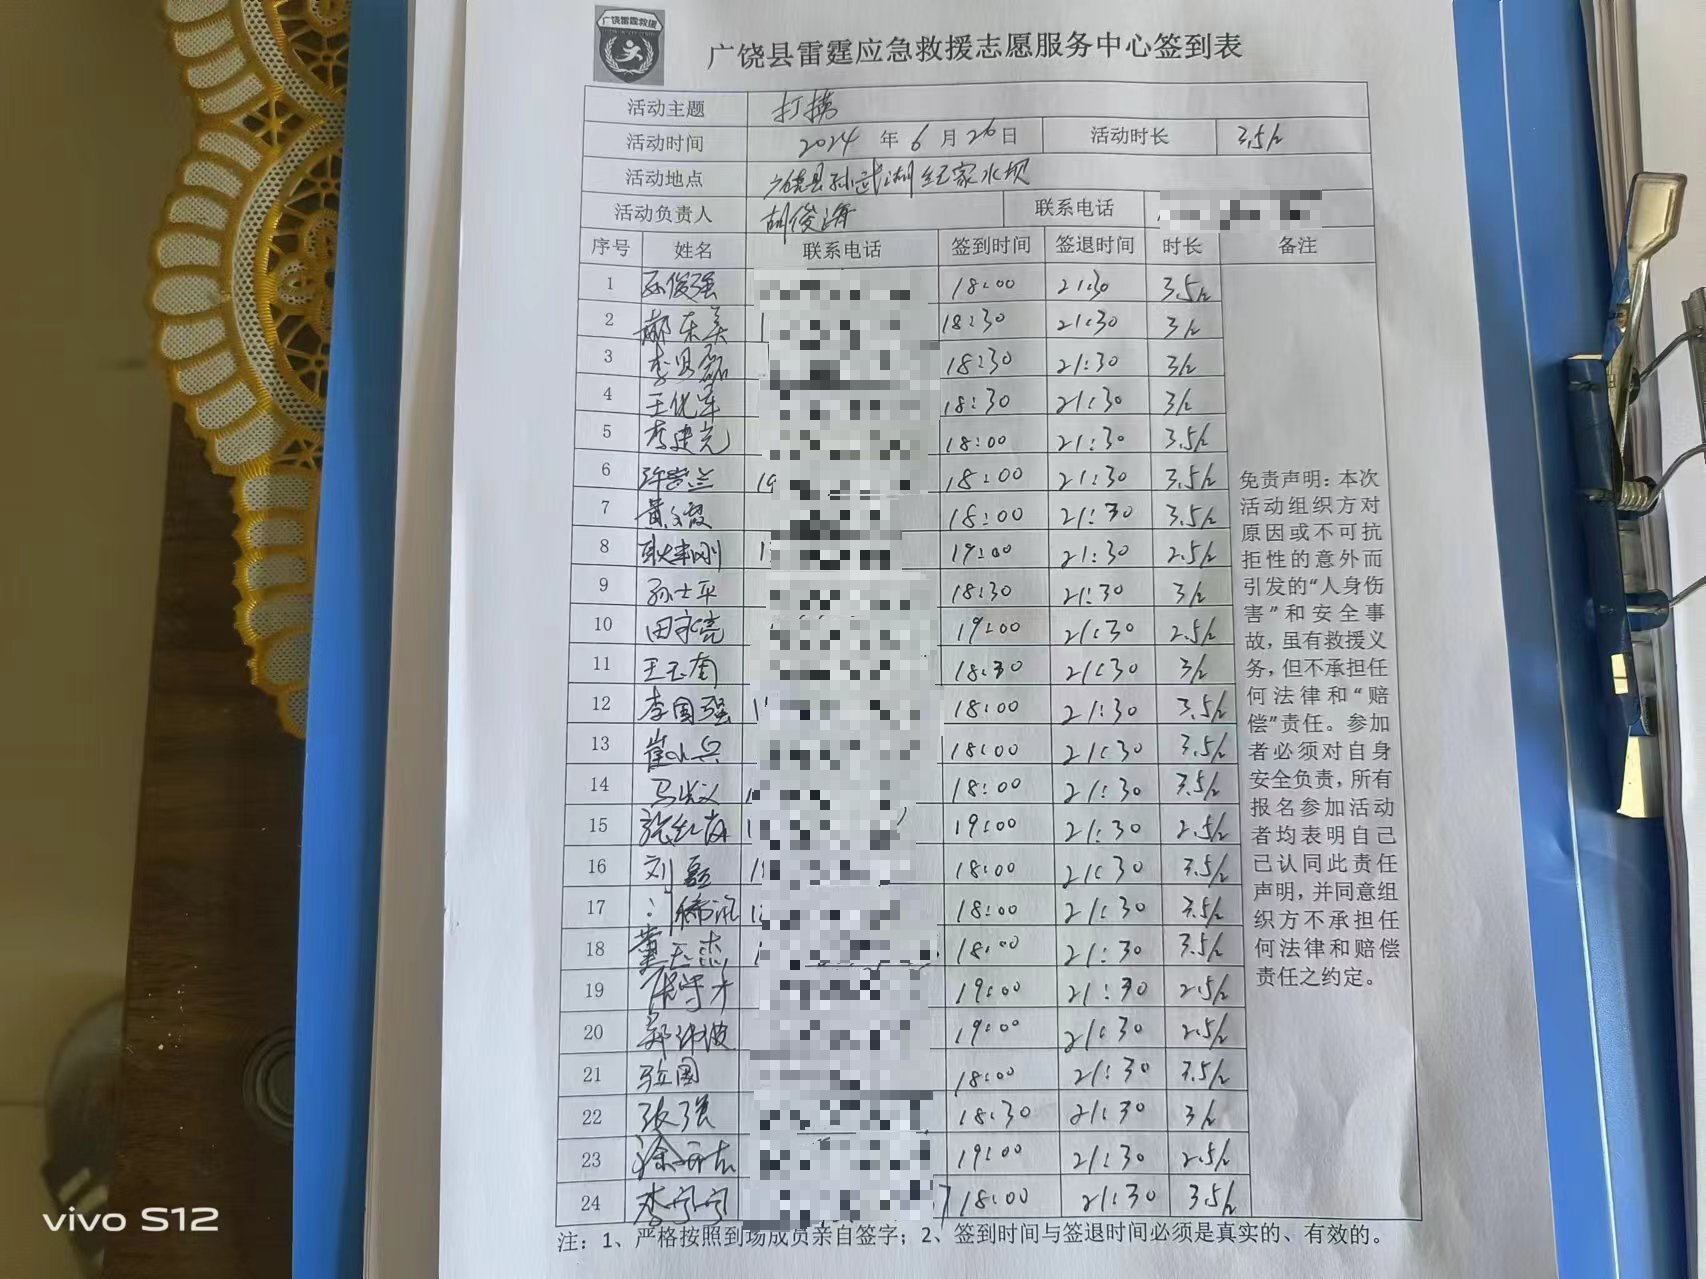 广饶雷霆救援
广饶县雷霆应急救援志愿服务中心签到表
活动主题 打捞
活动时间 2024 年 6 月 26 日 活动时长 3.5h
活动地点 广饶县孙武湖纪家水坝
活动负责人 胡俊海 联系电话
序号 姓名 联系电话 签到时间 签退时间 时长 备注
1 孙俊强 18:00 21:30 3.5h
2 18:30 21:30 3h
3 18:30 21:30 3h
4 王优军 18:30 21:30 3h
5 李建光 18:00 21:30 3.5h
6 许崇兰 19 18:00 21:30 3.5h
7 黄文霞 18:00 21:30 3.5h
8 19:00 21:30 2.5h
9 孙士平 18:30 21:30 3h
10 田永亮 19:00 21:30 2.5h
11 王玉衡 18:30 21:30 3h
12 李国强 1 18:00 21:30 3.5h
13 崔小兵 18:00 21:30 3.5h
14 18:00 21:30 3.5h
15 1 19:00 21:30 2.5h
16 刘磊 18:00 21:30 3.5h
17 18:00 21:30 3.5h
18 董玉杰 18:00 21:30 3.5h
19 19:00 21:30 2.5h
20 19:00 21:30 2.5h
21 18:00 21:30 3.5h
22 张强 18:30 21:30 3h
23 19:00 21:30 2.5h
24 李宁宁 7 18:00 21:30 3.5h
免责声明：本次
活动组织方对
原因或不可抗
拒性的意外而
引发的“人身伤
害”和安全事
故，虽有救援义
务，但不承担任
何法律和“赔
偿”责任。参加
者必须对自身
安全负责，所有
报名参加活动
者均表明自己
已认同此责任
声明，并同意组
织方不承担任
何法律和赔偿
责任之约定。
注：1、严格按照到场成员亲自签字；2、签到时间与签退时间必须是真实的、有效的。
vivo S12